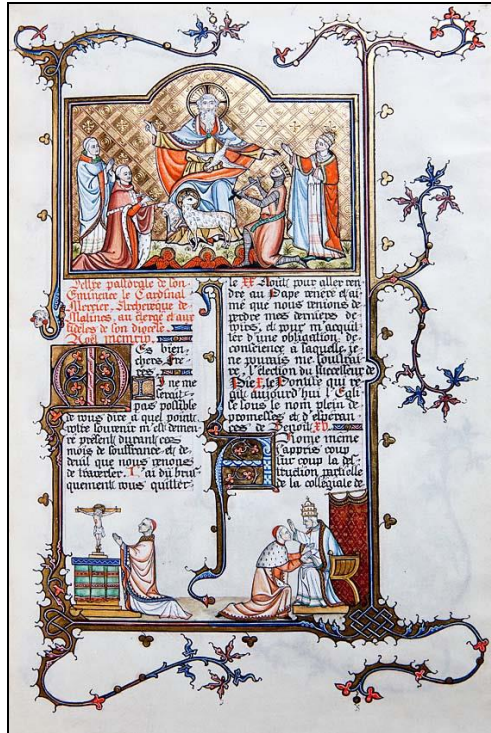 Lettre pastorale de Son
Eminence le Cardinal
Mercier, Archevêque de
Malines, au clergé et aux
fidèles de son diocèse.
Noël mcmxiv.
Mes bien
chers Frè
res
Il ne me
serait
pas possible
de vous dire à quel point
votre souvenir m'est demeu
ré présent durant ces
mois de souffrance et de
deuil que nous venons
de traverser. J'ai dû brus
quement vous quitter
le XX Août pour aller ren
dre au Pape vénéré et ai
mé que nous venions de
perdre mes derniers de
voirs, et pour m'acquit
ter d'une obligation de
conscience à laquelle je
ne pouvais me soustrai
re, l'élection du successeur de
Pie X, le Pontife qui ré
git aujourd'hui l'Egli
se sous le nom plein de
promesses et d'espéran
ces de Benoît XV.
A Rome même
j'appris coup
sur coup la des
truction partielle
de la collégiale de